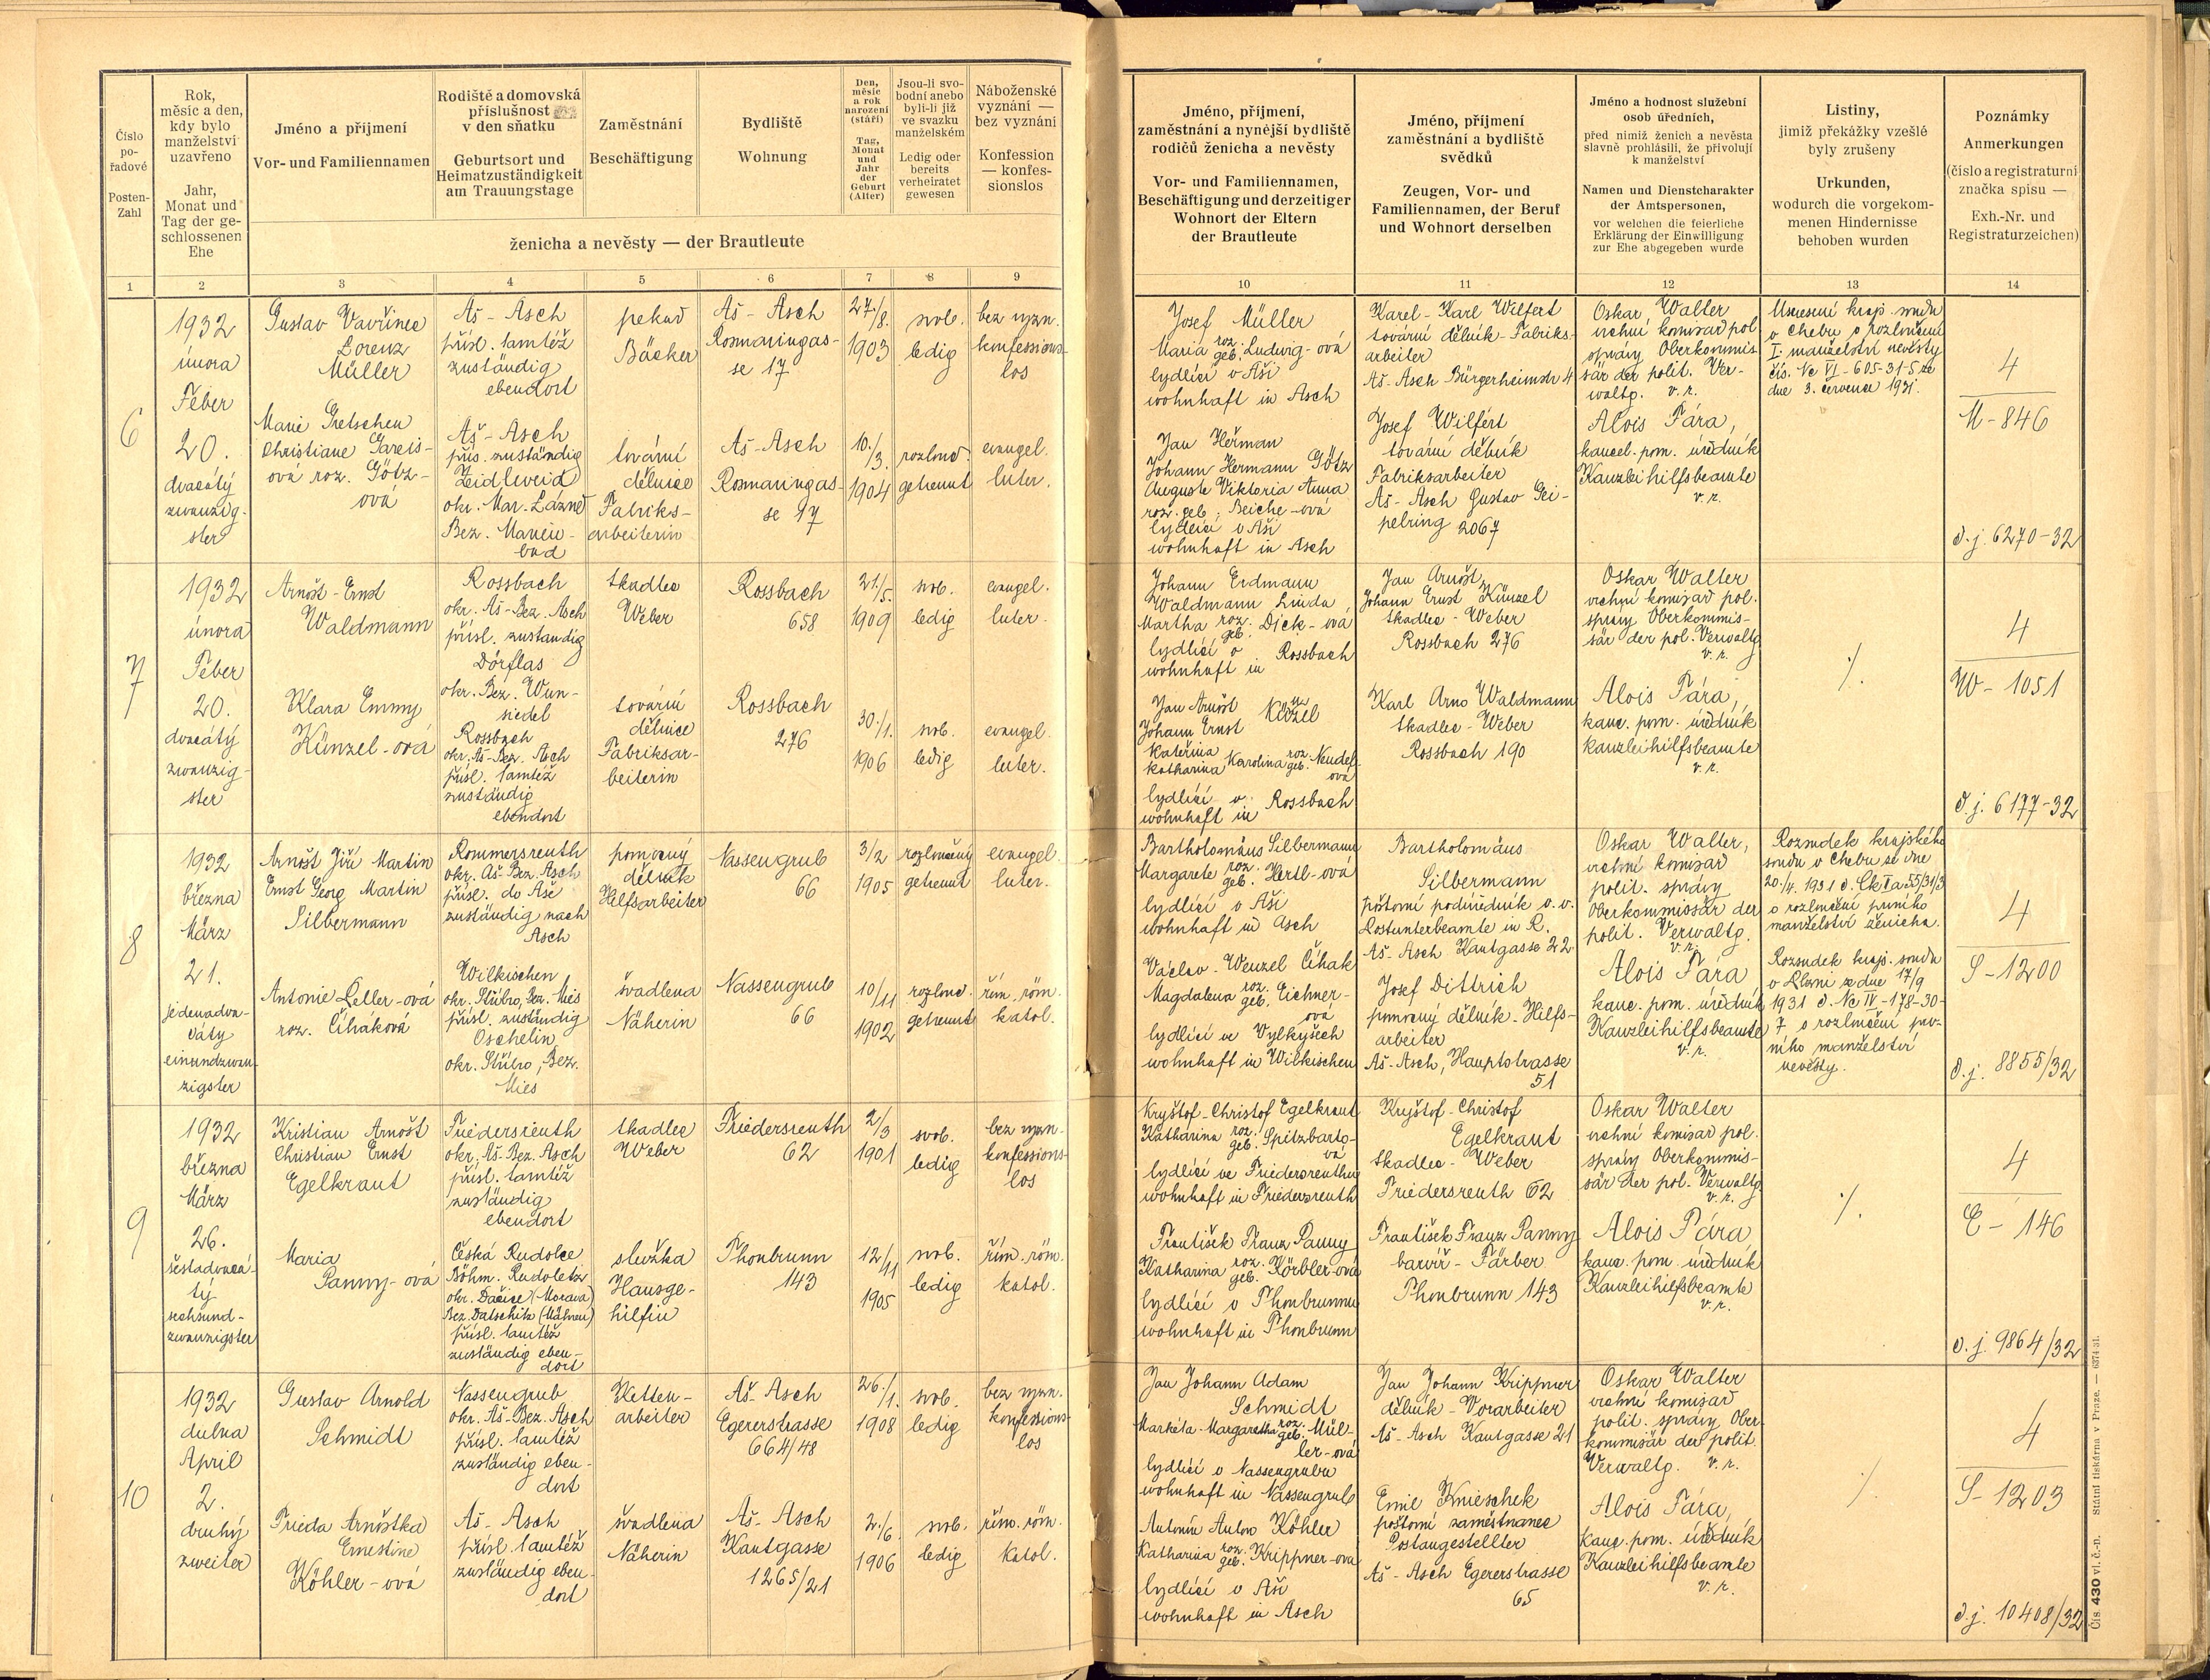 Číslo
po-
řadové
Posten-
Zahl
Rok,
měsíc a den,
kdy bylo
manželství
uzavřeno
Jahr,
Monat und
Tag der ge-
schlossenen
Ehe
Jméno a příjmení
Vor- und Familiennamen
Rodiště a domovská
příslušnost
v den sňatku
Geburtsort und
Heimatzuständigkeit
am Trauungstage
Zaměstnání
Beschäftigung
Bydliště
Wohnung
Den,
měsíc
a rok
narození
(stáří)
Tag,
Monat
und
Jahr
der
Geburt
(Alter)
Jsou-li svo-
bodní anebo
byli-li již
ve svazku
manželském
Ledig oder
bereits
verheiratet
gewesen
Náboženské
vyznání —
bez vyznání
Konfession
— konfes-
sionslos
ženicha a nevěsty — der Brautleute
Jméno, příjmení,
zaměstnání a nynější bydliště
rodičů ženicha a nevěsty
Vor- und Familiennamen,
Beschäftigung und derzeitiger
Wohnort der Eltern
der Brautleute
Jméno, příjmení
zaměstnání a bydliště
svědků
Zeugen, Vor- und
Familiennamen, der Beruf
und Wohnort derselben
Jméno a hodnost služební
osob úředních,
před nimiž ženich a nevěsta
slavně prohlásili, že přivolují
k manželství
Namen und Dienstcharakter
der Amtspersonen,
vor welchen die feierliche
Erklärung der Einwilligung
zur Ehe abgegeben wurde
Listiny,
jimiž překážky vzešlé
byly zrušeny
Urkunden,
wodurch die vorgekom-
menen Hindernisse
behoben wurden
Poznámky
Anmerkungen
(číslo a registraturní
značka spisu —
Exh.-Nr. und
Registraturzeichen)
1 2 3 4 5 6 7 8 9 10 11 12 13 14
6
1932
února
Feber
20.
dvacátý
zwanzig-
ster
Gustav Vavřinec
Lorenz
Müller
Aš - Asch
přísl. tamtéž
zuständig
ebendort
pekař
Bäcker
Aš - Asch
Rosmaringas-
se 17
27./8.
1903
svob.
ledig
bez vyzn.
konfessions-
los
Marie Gretschen
Christiane Gareis-
ová roz. Götz-
ová
Aš - Asch
přís. zuständig
Zeidlweid
okr. Mar. Lázně
Bez. Marien-
bad
tovární
dělnice
Fabriks-
arbeiterin
Aš - Asch
Rosmaringas-
se 17
10./3.
1904
rozlouč.
getrennt
evangel.
luter.
Josef Müller
Maria roz. geb. Ludwig-ová
bydlící v Aši
wohnhaft in Asch
Jan Heřman
Johann Hermann Götz
Auguste Viktoria Anna
roz. geb. Beiche-ová
bydlící v Aši
wohnhaft in Asch
Karel - Karl Wilfert
tovární dělník - Fabriks-
arbeiter
Aš - Asch Bürgerheimstr 4
Josef Wilfert
tovární dělník
Fabriksarbeiter
Aš - Asch Gustav Gei-
pelring 2067
Oskar Walter
vrchní komisař pol.
správy Oberkommis-
sär der polit. Ver-
waltg. v. r.
Alois Pára,
kancel. pom. úředník
Kanzleihilfsbeamte
v. r.
Usnesení kraj. soudu
v Chebu o rozloučení
I. manželství nevěsty
čís. Nc VI-605-31-5 ze
dne 3. července 1931.
4
M-846
č.j. 6270-32
7
1932
února
Feber
20.
dvacátý
zwanzig-
ster
Arnošt - Ernst
Waldmann
Rossbach
okr. Aš - Bez. Asch
přísl. zuständig
Dörflas
okr. Bez. Wun-
siedel
tkadlec
Weber
Rossbach
658
21./5.
1909
svob.
ledig
evangel.
luter.
Klara Emmy
Künzel-ová
Rossbach
okr. Aš - Bez. Asch
přísl. tamtéž
zuständig
ebendort
tovární
dělnice
Fabriksar-
beiterin
Rossbach
276
30./1.
1906
svob.
ledig
evangel.
luter.
Johann Erdmann
Waldmann Linda
Martha roz. geb. Dick-ová
bydlící v Rossbach
wohnhaft in
Jan Arnošt
Johann Ernst
Kateřina
Katharina Karolina roz. geb. Neudel-
ová
bydlící v Rossbach
wohnhaft in
Jan Arnošt
Johann Ernst Künzel
tkadlec - Weber
Rossbach 276
Karl Arno Waldmann
tkadlec - Weber
Rossbach 190
Oskar Walter
vrchní komisař pol.
správy Oberkommis-
sär der pol. Verwaltg.
v. r.
Alois Pára,
kanc. pom. úředník
Kanzleihilfsbeamte
v. r.
·/.
4
W-1051
č.j. 6177-32
8
1932
března
März
21.
jedenadva-
cátý
einundzwan-
zigster
Arnošt Jiří Martin
Ernst Georg Martin
Silbermann
Rommersreuth
okr. Aš Bez. Asch
přísl. do Aše
zuständig nach
Asch
pomocný
dělník
Hilfsarbeiter
Nassengrub
66
3/2
1905
rozloučený
getrennt
evangel.
luter.
Antonie Zeller-ová
roz. Čiháková
Wilkischen
okr. Stříbro, Bez. Mies
přísl. zuständig
Oschelin
okr. Stříbro, Bez.
Mies
švadlena
Näherin
Nassengrub
66
10/11
1902
rozlouč.
getrennt
řím. röm.
katol.
Bartholomäus Silbermann
Margarete roz. geb. Hertl-ová
bydlící v Aši
wohnhaft in Asch
Václav - Wenzel Čihak
Magdalena roz. geb. Eichner-
ová
bydlící ve Vylkyšech
wohnhaft in Wilkischen
Bartholomäus
Silbermann
poštovní podúředník v. v.
Postunterbeamte in R.
Aš - Asch Kantgasse 22
Josef Dittrich
pomocný dělník - Hilfs-
arbeiter
Aš - Asch, Hauptstrasse
51
Oskar Walter,
vrchní komisař
polit. správy
Oberkommissär der
polit. Verwaltg.
v. r.
Alois Pára
kanc. pom. úředník
Kanzleihilfsbeamte
v. r.
Rozsudek krajského
soudu v Chebu ze dne
20./4. 1931 č. Ck I a 55/31/3
o rozloučení prvního
manželství ženicha.
Rozsudek kraj. soudu
v Plzni ze dne 17/9
1931 č. Nc IV-178-30-
7 o rozloučení prv-
ního manželství
nevěsty.
4
S-1200
č.j. 8855/32
9
1932
března
März
26.
šestadvacá-
tý
sechsund-
zwanzigster
Kristian Arnošt
Christian Ernst
Egelkraut
Friedersreuth
okr. Aš - Bez. Asch
přísl. tamtéž
zuständig
ebendort
tkadlec
Weber
Friedersreuth
62
2/3
1901
svob.
ledig
bez vyzn.
konfessions-
los
Maria
Panny-ová
Česká Rudolec
Böhm. Rudoletz
okr. Dačice (Morava)
Bez. Datschitz (Mähren)
přísl. tamtéž
zuständig eben-
dort
služka
Hausge-
hilfin
Thonbrunn
143
12/11
1905
svob.
ledig
řím. röm.
katol.
Kryštof - Christof Egelkraut
Katharina roz. geb. Spitzbarto-
vá
bydlící ve Friedersreuthu
wohnhaft in Friedersreuth
František Franz Panny
Katharina roz. geb. Körbler-ová
bydlící v Thonbrunnu
wohnhaft in Thonbrunn
Kryštof - Christof
Egelkraut
tkadlec - Weber
Friedersreuth 62
František Franz Panny
barvíř - Färber
Thonbrunn 143
Oskar Walter
vrchní komisař pol.
správy Oberkommis-
sär der pol. Verwaltg.
v. r.
Alois Pára
kanc. pom. úředník
Kanzleihilfsbeamte
v. r.
·/.
4
E-146
č.j. 9864/32
10
1932
dubna
April
2.
druhý
zweiter
Gustav Arnold
Schmidt
Nassengrub
okr. Aš - Bez. Asch
přísl. tamtéž
zuständig eben-
dort
Ketten-
arbeiter
Aš - Asch
Egererstrasse
664/48
26./1.
1908
svob.
ledig
bez vyzn.
konfessions-
los
Frieda Arnoštka
Ernestine
Köhler-ová
Aš - Asch
přísl. tamtéž
zuständig eben-
dort
švadlena
Näherin
Aš - Asch
Kantgasse
1265/21
2./6.
1906
svob.
ledig
řím. röm.
katol.
Jan Johann Adam
Schmidt
Markéta - Margaretha roz. geb. Mül-
ler-ová
bydlící v Nassengrubu
wohnhaft in Nassengrub
Antonín Anton Köhler
Katharina roz. geb. Krippner-ová
bydlící v Aši
wohnhaft in Asch
Jan Johann Krippner
dělník - Vorarbeiter
Aš - Asch Kantgasse 21
Emil Knieschek
poštovní zaměstnanec
Postangestellter
Aš - Asch Egererstrasse
65
Oskar Walter
vrchní komisař
polit. správy Ober-
kommisär der polit.
Verwaltg. v. r.
Alois Pára,
kanc. pom. úředník
Kanzleihilfsbeamte
v. r.
·/.
4
S-1203
č.j. 10408/32
Čís. 430 vl. č.-n. Státní tiskárna v Praze. — 6374-31.